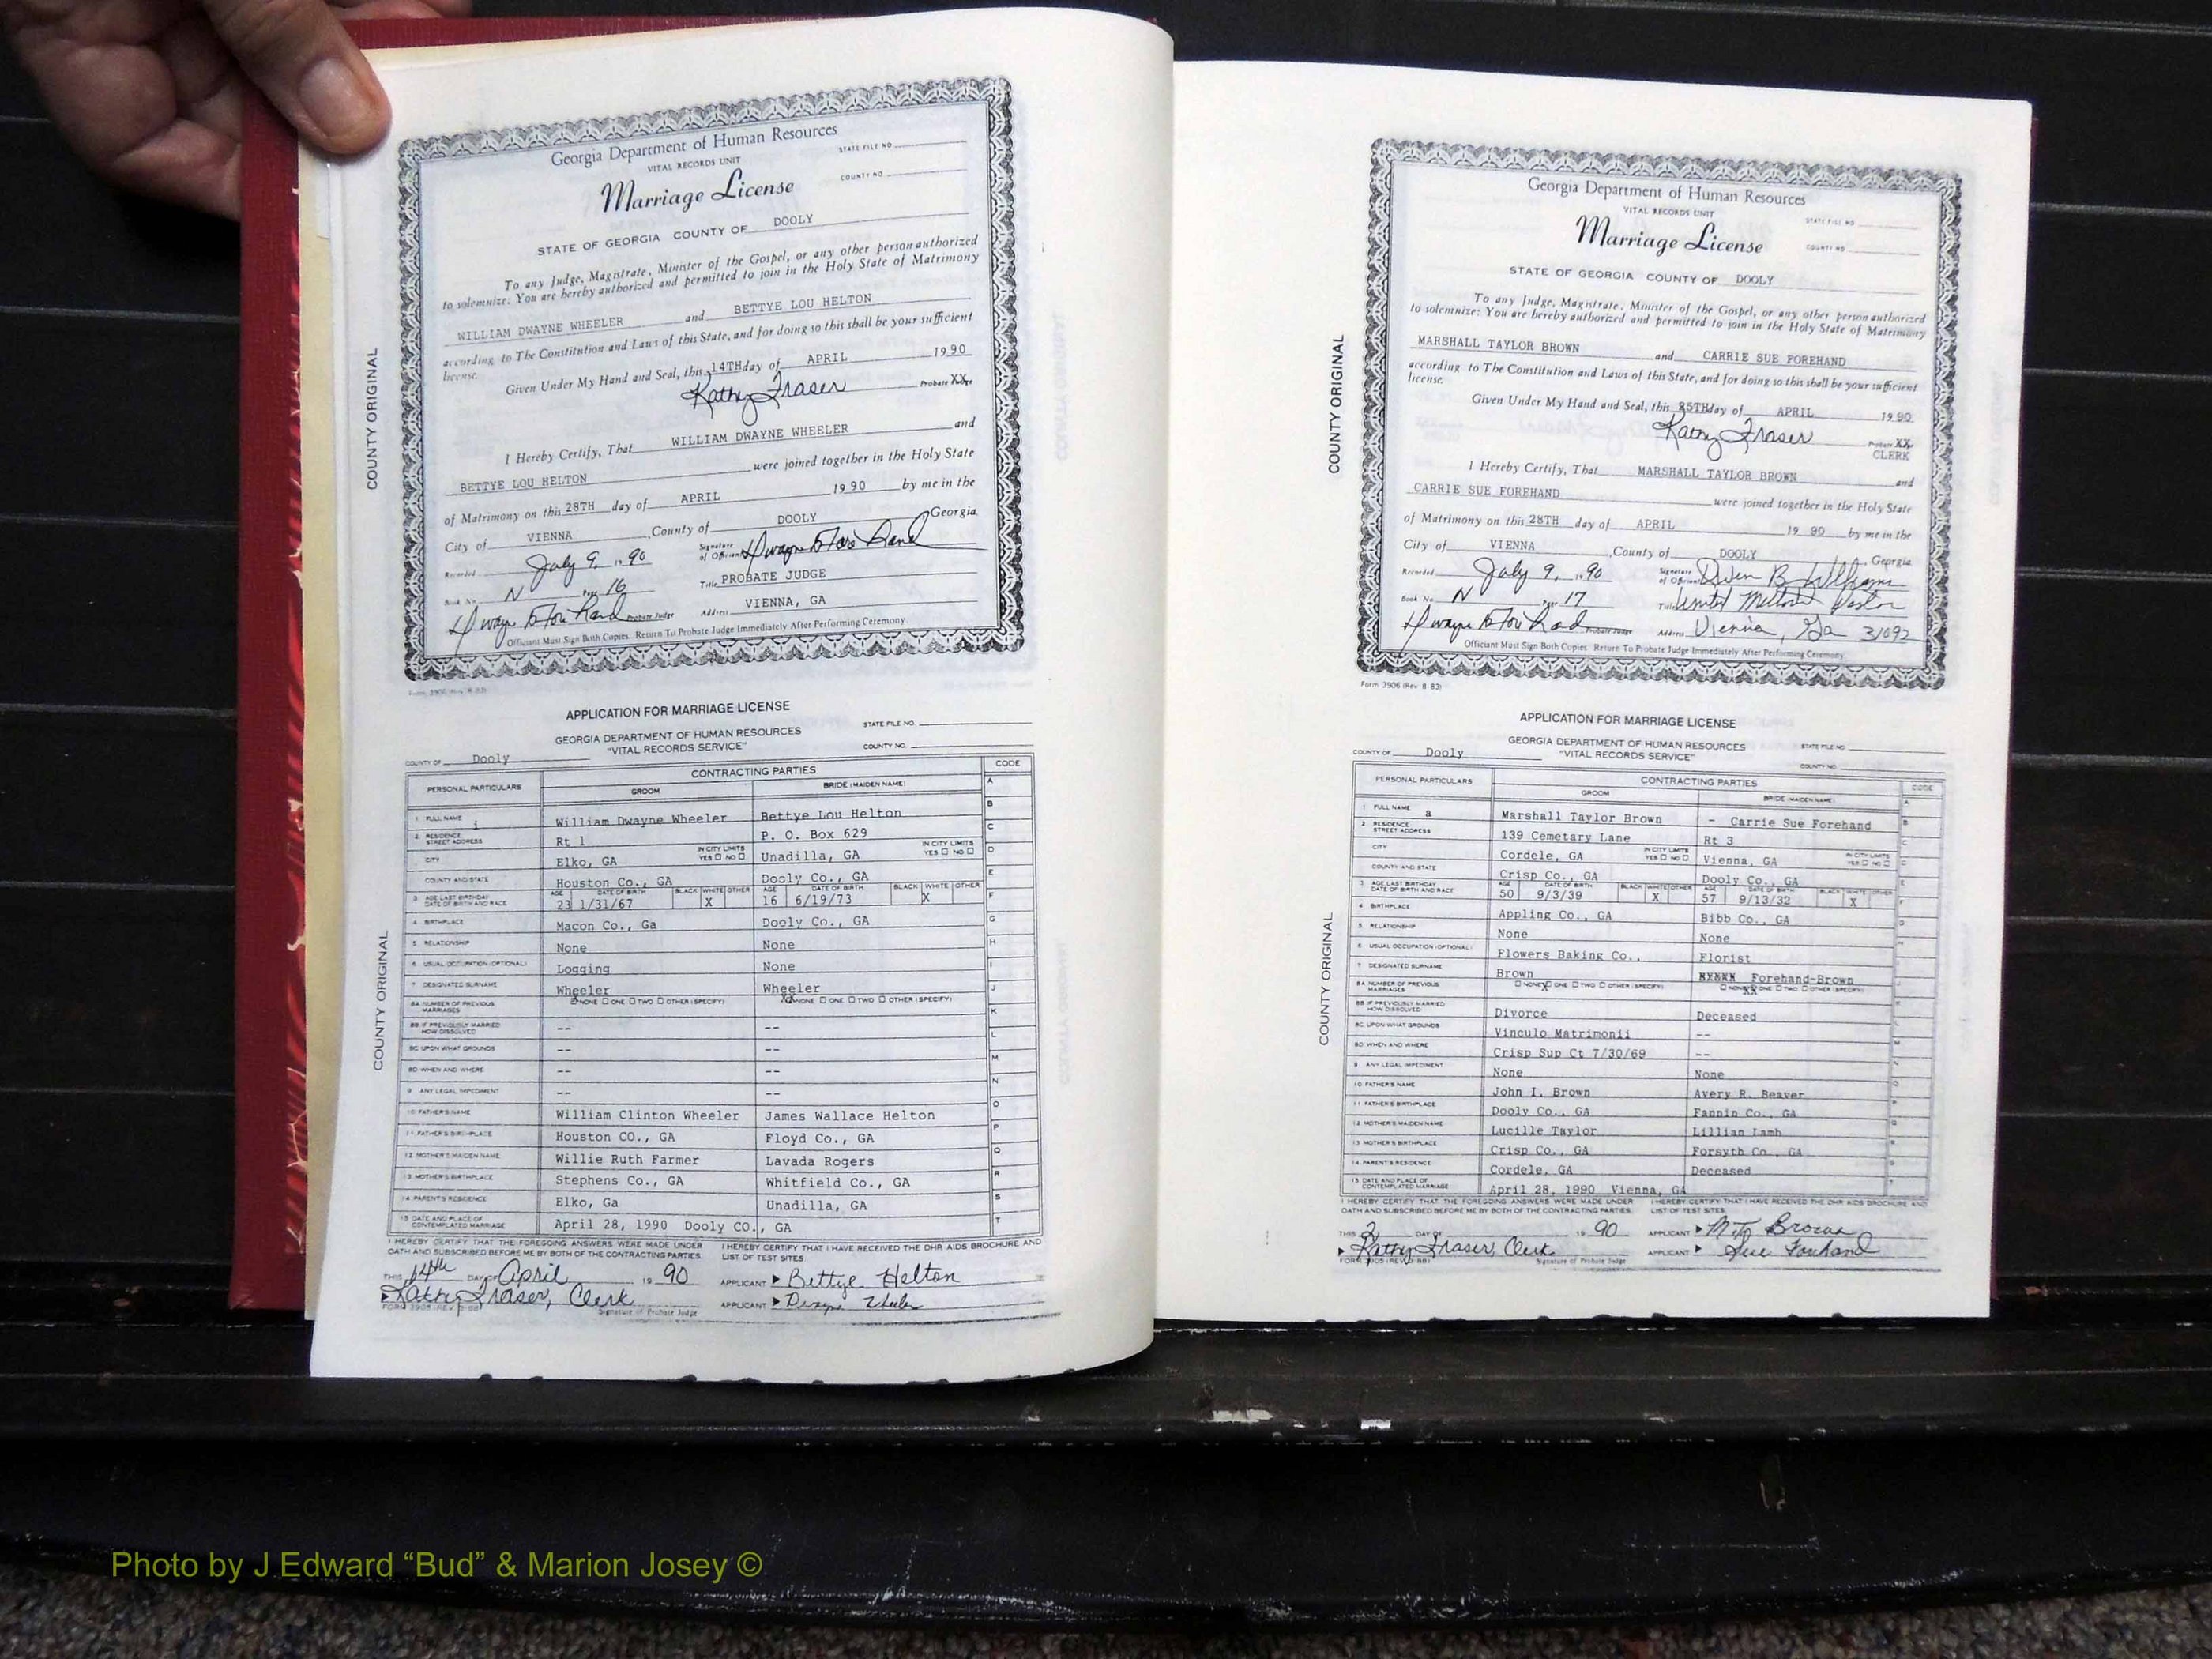 COUNTY ORIGINAL
Georgia Department of Human Resources
VITAL RECORDS UNIT
STATE FILE NO.
Marriage License
COUNTY NO.
STATE OF GEORGIA COUNTY OF DOOLY
To any Judge, Magistrate, Minister of the Gospel, or any other person authorized
to solemnize: You are hereby authorized and permitted to join in the Holy State of Matrimony
WILLIAM DWAYNE WHEELER and BETTYE LOU HELTON
according to The Constitution and Laws of this State, and for doing so this shall be your sufficient
license.
Given Under My Hand and Seal, this 14TH day of APRIL 19 90
Kathy Fraser Probate XX
I Hereby Certify, That WILLIAM DWAYNE WHEELER and
BETTYE LOU HELTON were joined together in the Holy State
of Matrimony on this 28TH day of APRIL 19 90 by me in the
City of VIENNA, County of DOOLY Georgia.
Recorded July 9, 19 90 Signature of Officiant
Book No. N Page 16 Title PROBATE JUDGE
Probate Judge Address VIENNA, GA
Officiant Must Sign Both Copies. Return To Probate Judge Immediately After Performing Ceremony.
Form 3906 (Rev. 8-83)
COUNTY ORIGINAL
APPLICATION FOR MARRIAGE LICENSE
GEORGIA DEPARTMENT OF HUMAN RESOURCES STATE FILE NO.
"VITAL RECORDS SERVICE" COUNTY NO.
COUNTY OF Dooly
PERSONAL PARTICULARS CONTRACTING PARTIES CODE
GROOM BRIDE (MAIDEN NAME)
1 FULL NAME William Dwayne Wheeler Bettye Lou Helton
2 RESIDENCE STREET ADDRESS Rt 1 P. O. Box 629
CITY Elko, GA IN CITY LIMITS YES NO Unadilla, GA IN CITY LIMITS YES NO
COUNTY AND STATE Houston Co., GA Dooly Co., GA
3 AGE LAST BIRTHDAY DATE OF BIRTH AND RACE AGE 23 DATE OF BIRTH 1/31/67 BLACK WHITE X OTHER AGE 16 DATE OF BIRTH 6/19/73 BLACK WHITE X OTHER
4 BIRTHPLACE Macon Co., Ga Dooly Co., GA
5 RELATIONSHIP None None
6 USUAL OCCUPATION (OPTIONAL) Logging None
7 DESIGNATED SURNAME Wheeler Wheeler
8A NUMBER OF PREVIOUS MARRIAGES NONE ONE TWO OTHER (SPECIFY) NONE ONE TWO OTHER (SPECIFY)
8B IF PREVIOUSLY MARRIED HOW DISSOLVED -- --
8C UPON WHAT GROUNDS -- --
8D WHEN AND WHERE -- --
9 ANY LEGAL IMPEDIMENT -- --
10 FATHER'S NAME William Clinton Wheeler James Wallace Helton
11 FATHER'S BIRTHPLACE Houston CO., GA Floyd Co., GA
12 MOTHER'S MAIDEN NAME Willie Ruth Farmer Lavada Rogers
13 MOTHER'S BIRTHPLACE Stephens Co., GA Whitfield Co., GA
14 PARENT'S RESIDENCE Elko, Ga Unadilla, GA
15 DATE AND PLACE OF CONTEMPLATED MARRIAGE April 28, 1990 Dooly CO., GA
I HEREBY CERTIFY THAT THE FOREGOING ANSWERS WERE MADE UNDER I HEREBY CERTIFY THAT I HAVE RECEIVED THE DHR AIDS BROCHURE AND
OATH AND SUBSCRIBED BEFORE ME BY BOTH OF THE CONTRACTING PARTIES. LIST OF TEST SITES
THIS 14th DAY OF April 19 90 APPLICANT Bettye Helton
Kathy Fraser, Clerk APPLICANT Dwayne Wheeler
Signature of Probate Judge
COUNTY ORIGINAL
Georgia Department of Human Resources
VITAL RECORDS UNIT
STATE FILE NO.
Marriage License
COUNTY NO.
STATE OF GEORGIA COUNTY OF DOOLY
To any Judge, Magistrate, Minister of the Gospel, or any other person authorized
to solemnize: You are hereby authorized and permitted to join in the Holy State of Matrimony
MARSHALL TAYLOR BROWN and CARRIE SUE FOREHAND
according to The Constitution and Laws of this State, and for doing so this shall be your sufficient
license.
Given Under My Hand and Seal, this 25TH day of APRIL 19 90
Kathy Fraser Probate XX
CLERK
I Hereby Certify, That MARSHALL TAYLOR BROWN and
CARRIE SUE FOREHAND were joined together in the Holy State
of Matrimony on this 28TH day of APRIL 19 90 by me in the
City of VIENNA, County of DOOLY, Georgia
Recorded July 9, 19 90 Signature of Officiant B Williams
Book No. N Page 17 Title United Pastor
Probate Judge Address Vienna, Ga 31092
Officiant Must Sign Both Copies. Return To Probate Judge Immediately After Performing Ceremony.
Form 3906 (Rev. 8-83)
COUNTY ORIGINAL
APPLICATION FOR MARRIAGE LICENSE
GEORGIA DEPARTMENT OF HUMAN RESOURCES STATE FILE NO.
"VITAL RECORDS SERVICE" COUNTY NO.
COUNTY OF Dooly
PERSONAL PARTICULARS CONTRACTING PARTIES CODE
GROOM BRIDE (MAIDEN NAME)
1 FULL NAME a Marshall Taylor Brown - Carrie Sue Forehand
2 RESIDENCE STREET ADDRESS 139 Cemetary Lane Rt 3
CITY Cordele, GA IN CITY LIMITS YES NO Vienna, GA IN CITY LIMITS YES NO
COUNTY AND STATE Crisp Co., GA Dooly Co., GA
3 AGE LAST BIRTHDAY DATE OF BIRTH AND RACE AGE 50 DATE OF BIRTH 9/3/39 BLACK WHITE X OTHER AGE 57 DATE OF BIRTH 9/13/32 BLACK WHITE X OTHER
4 BIRTHPLACE Appling Co., GA Bibb Co., GA
5 RELATIONSHIP None None
6 USUAL OCCUPATION (OPTIONAL) Flowers Baking Co., Florist
7 DESIGNATED SURNAME Brown Forehand-Brown
8A NUMBER OF PREVIOUS MARRIAGES NONE ONE TWO OTHER (SPECIFY) NONE ONE TWO OTHER (SPECIFY)
8B IF PREVIOUSLY MARRIED HOW DISSOLVED Divorce Deceased
8C UPON WHAT GROUNDS Vinculo Matrimonii --
8D WHEN AND WHERE Crisp Sup Ct 7/30/69 --
9 ANY LEGAL IMPEDIMENT None None
10 FATHER'S NAME John I. Brown Avery R. Beaver
11 FATHER'S BIRTHPLACE Dooly Co., GA Fannin Co., GA
12 MOTHER'S MAIDEN NAME Lucille Taylor Lillian Lamb
13 MOTHER'S BIRTHPLACE Crisp Co., GA Forsyth Co., GA
14 PARENT'S RESIDENCE Cordele, GA Deceased
15 DATE AND PLACE OF CONTEMPLATED MARRIAGE April 28, 1990 Vienna, GA
I HEREBY CERTIFY THAT THE FOREGOING ANSWERS WERE MADE UNDER I HEREBY CERTIFY THAT I HAVE RECEIVED THE DHR AIDS BROCHURE AND
OATH AND SUBSCRIBED BEFORE ME BY BOTH OF THE CONTRACTING PARTIES. LIST OF TEST SITES
THIS 2 DAY OF 19 90 APPLICANT Brown
Kathy Fraser, Clerk APPLICANT Sue Forehand
Signature of Probate Judge
Photo by J Edward “Bud” & Marion Josey ©